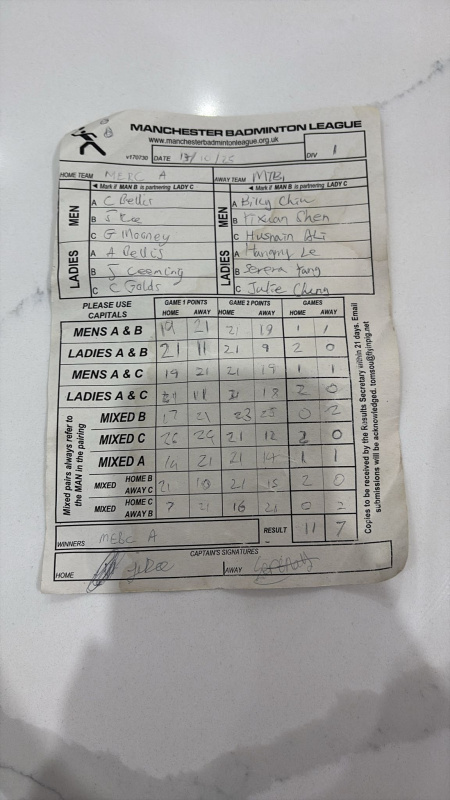 MANCHESTER BADMINTON LEAGUE
www.manchesterbadmintonleague.org.uk
v170730 DATE 13/10/25 DIV 1
HOME TEAM MERC A AWAY TEAM
◄ Mark if MAN B is partnering LADY C ◄ Mark if MAN B is partnering LADY C
MEN A C Bellis MEN A Billy Chin
B B Yixuan Shen
C G Mooney C Husnain Ali
LADIES A A Bellis LADIES A Le
B J Leeming B Serena Yang
C C Golds C Julie Cheng
PLEASE USE CAPITALS GAME 1 POINTS GAME 2 POINTS GAMES
HOME AWAY HOME AWAY HOME AWAY
MENS A & B 19 21 21 19 1 1
LADIES A & B 21 11 21 9 2 0
MENS A & C 19 21 21 19 1 1
LADIES A & C 21 11 21 18 2 0
MIXED B 17 21 23 25 0 2
MIXED C 26 24 21 12 2 0
MIXED A 21 21 14 1 1
MIXED HOME B AWAY C 21 21 15 2 0
MIXED HOME C AWAY B 7 21 16 21 0 2
Mixed pairs always refer to the MAN in the pairing
WINNERS MERC A RESULT 11 7
CAPTAIN'S SIGNATURES
HOME AWAY
Copies to be received by the Results Secretary within 21 days. Email submissions will be acknowledged. tomsou@flyinpig.net